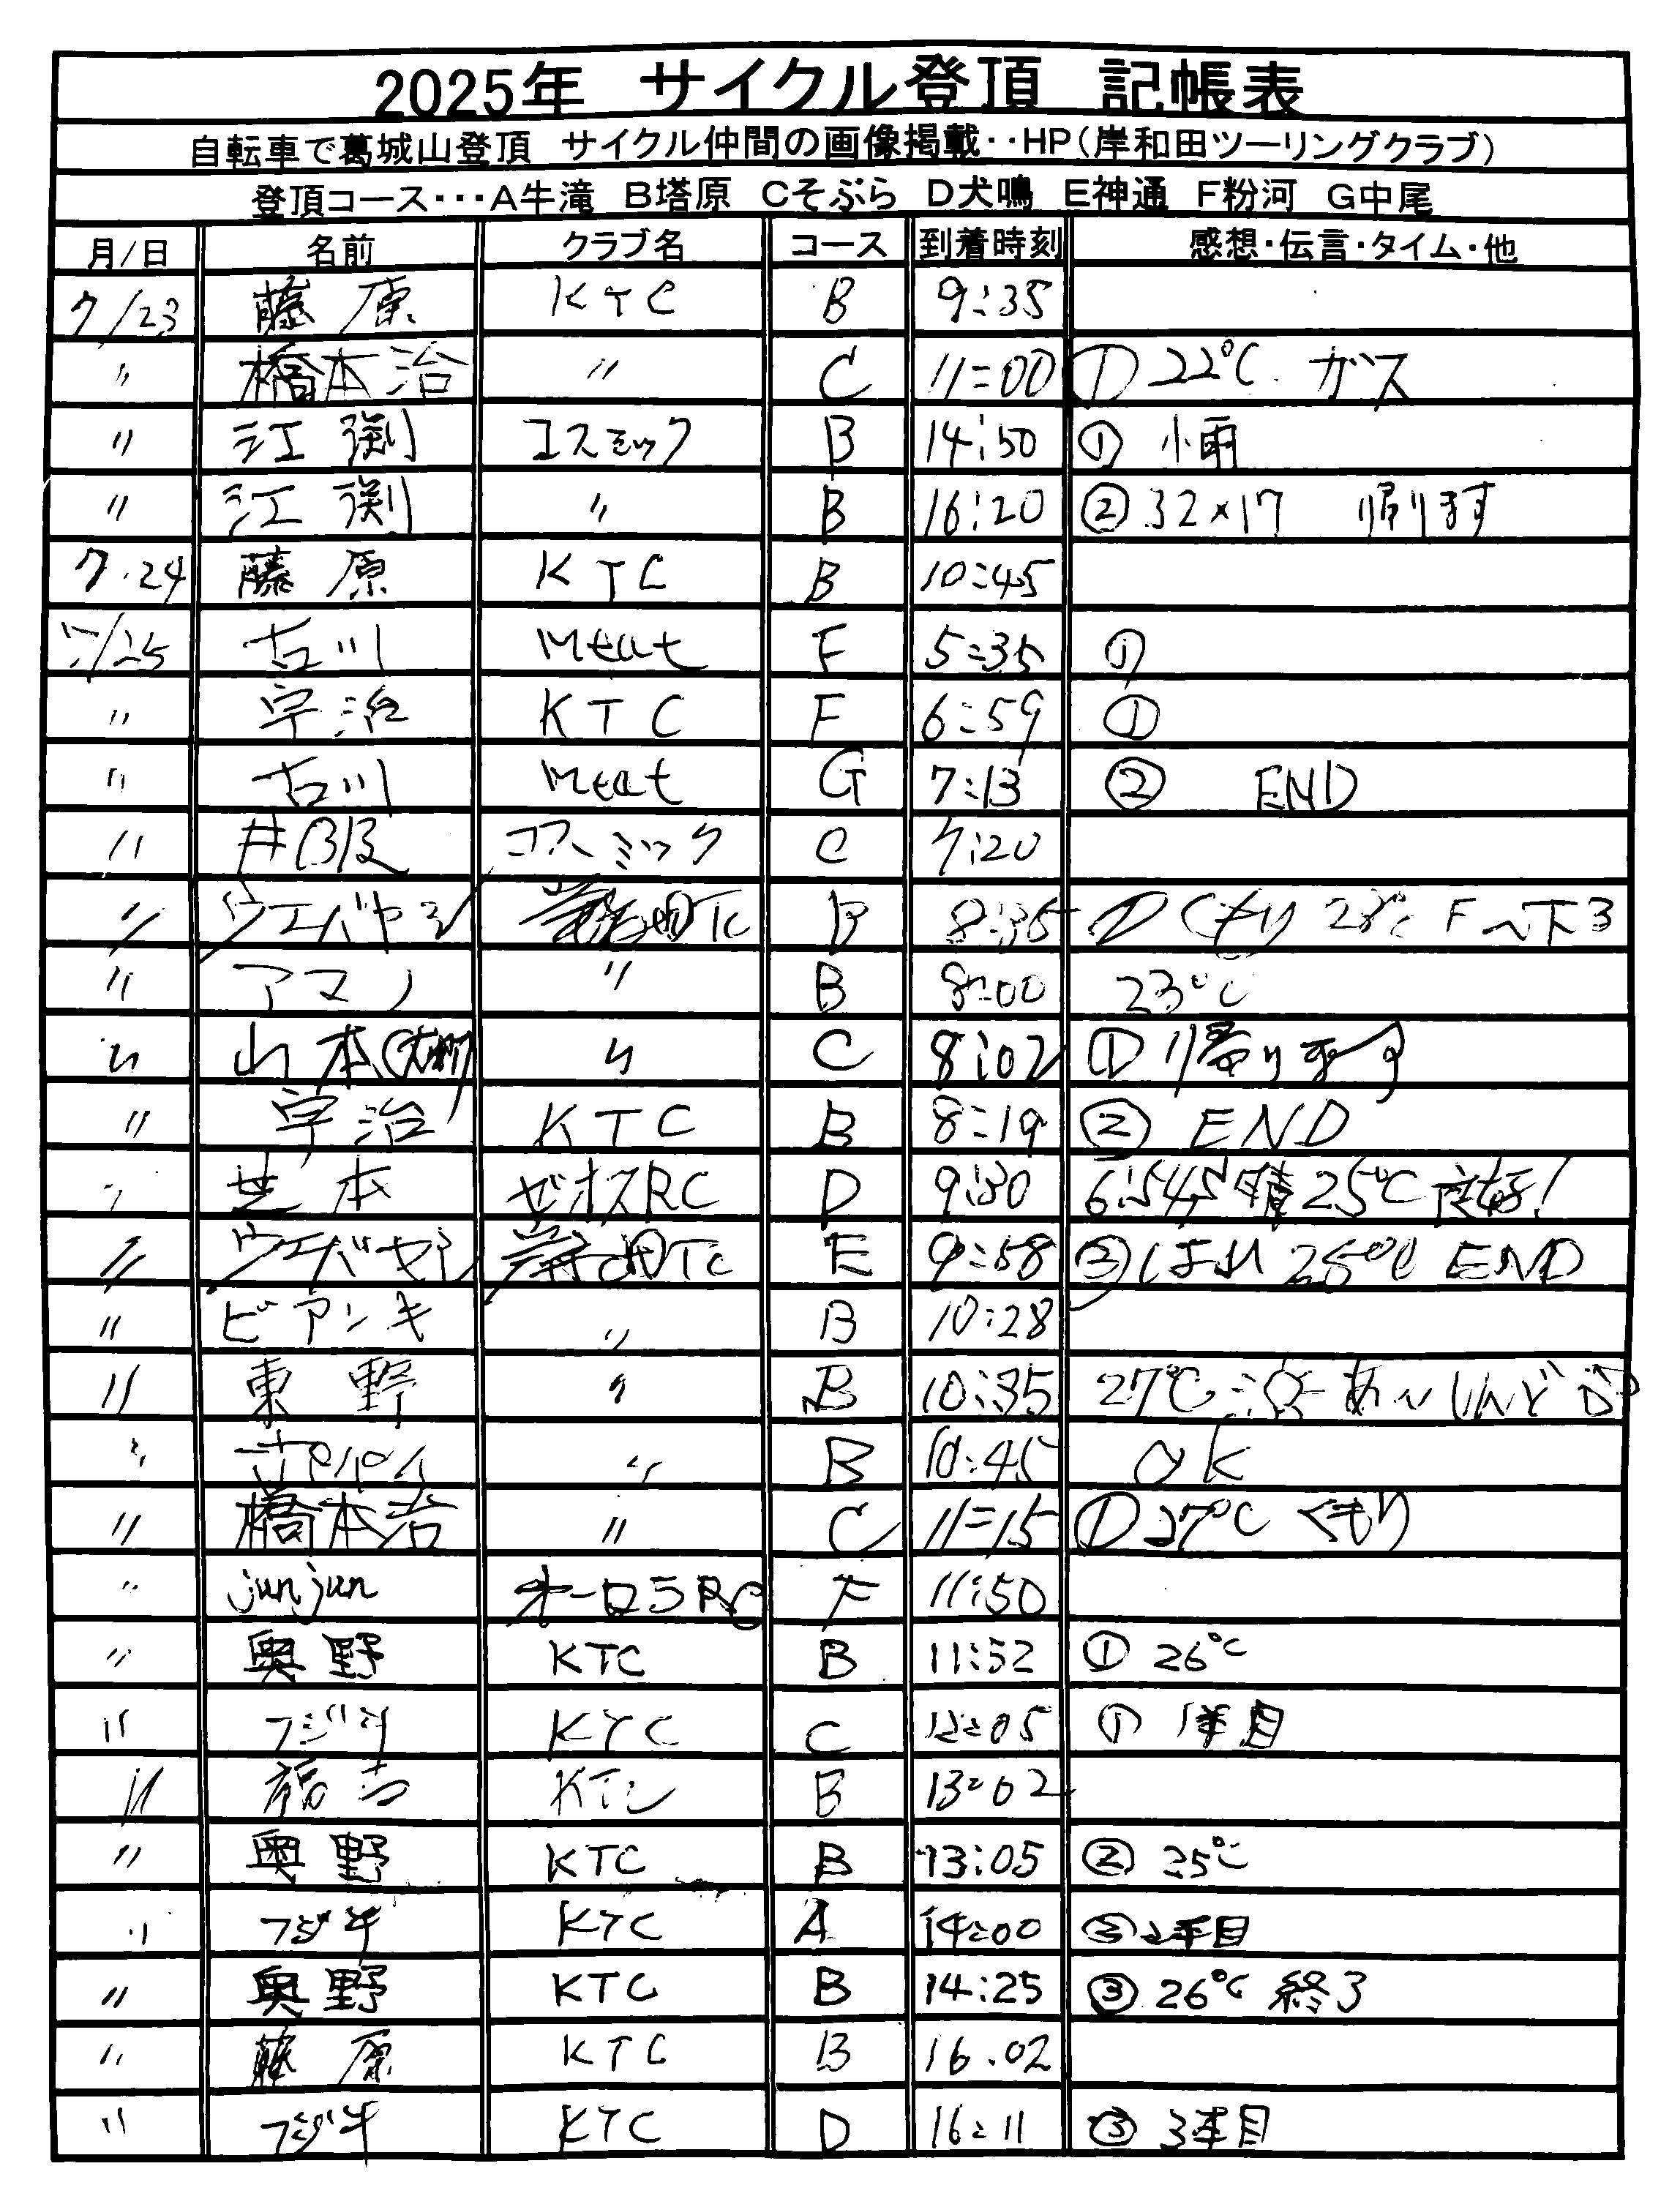 2025年 サイクル登頂 記帳表
自転車で葛城山登頂 サイクル仲間の画像掲載‥HP(岸和田ツーリングクラブ)
登頂コース･･･A牛滝 B塔原 Cそぶら D犬鳴 E神通 F粉河 G中尾
月/日 名前 クラブ名 コース 到着時刻 感想・伝言・タイム・他
7/23 藤原 KTC B 9:35
〃 橋本治 〃 C 11:00 ① 22℃ ガス
〃 江渕 コスミック B 14:50 ① 小雨
〃 江渕 〃 B 16:20 ② 32×17 帰ります
7.24 藤原 KTC B 10:45
7/25 古川 Meat F 5:35 ①
〃 宇治 KTC F 6:59 ①
〃 古川 Meat G 7:13 ② END
〃 井 コスミック C 7:20
〃 ウエバヤシ TC B 8:35 ① くもり 23℃ Fへ下る
〃 アマノ 〃 B 8:00 23℃
〃 山本 〃 C 8:02 ① 帰ります
〃 宇治 KTC B 8:19 ② END
〃 芝本 ゼオスRC D 9:30 晴 25℃ 良好!
〃 ウエバヤシ TC E 9:58 25℃ END
〃 ビアンキ 〃 B 10:28
〃 東野 〃 B 10:35 27℃ あ〜しんど
〃 〃 B 10:45 OK
〃 橋本治 〃 C 11:15 ① 27℃ くもり
〃 junjun オーロラRC F 11:50
〃 奥野 KTC B 11:52 ① 26℃
〃 フジキ KTC C 12:05 ① 1本目
〃 KTC B 13:02
〃 奥野 KTC B 13:05 ② 25℃
〃 フジキ KTC A 14:00 ② 2本目
〃 奥野 KTC B 14:25 ③ 26℃ 終了
〃 藤原 KTC B 16.02
〃 フジキ KTC D 16:11 ③ 3本目